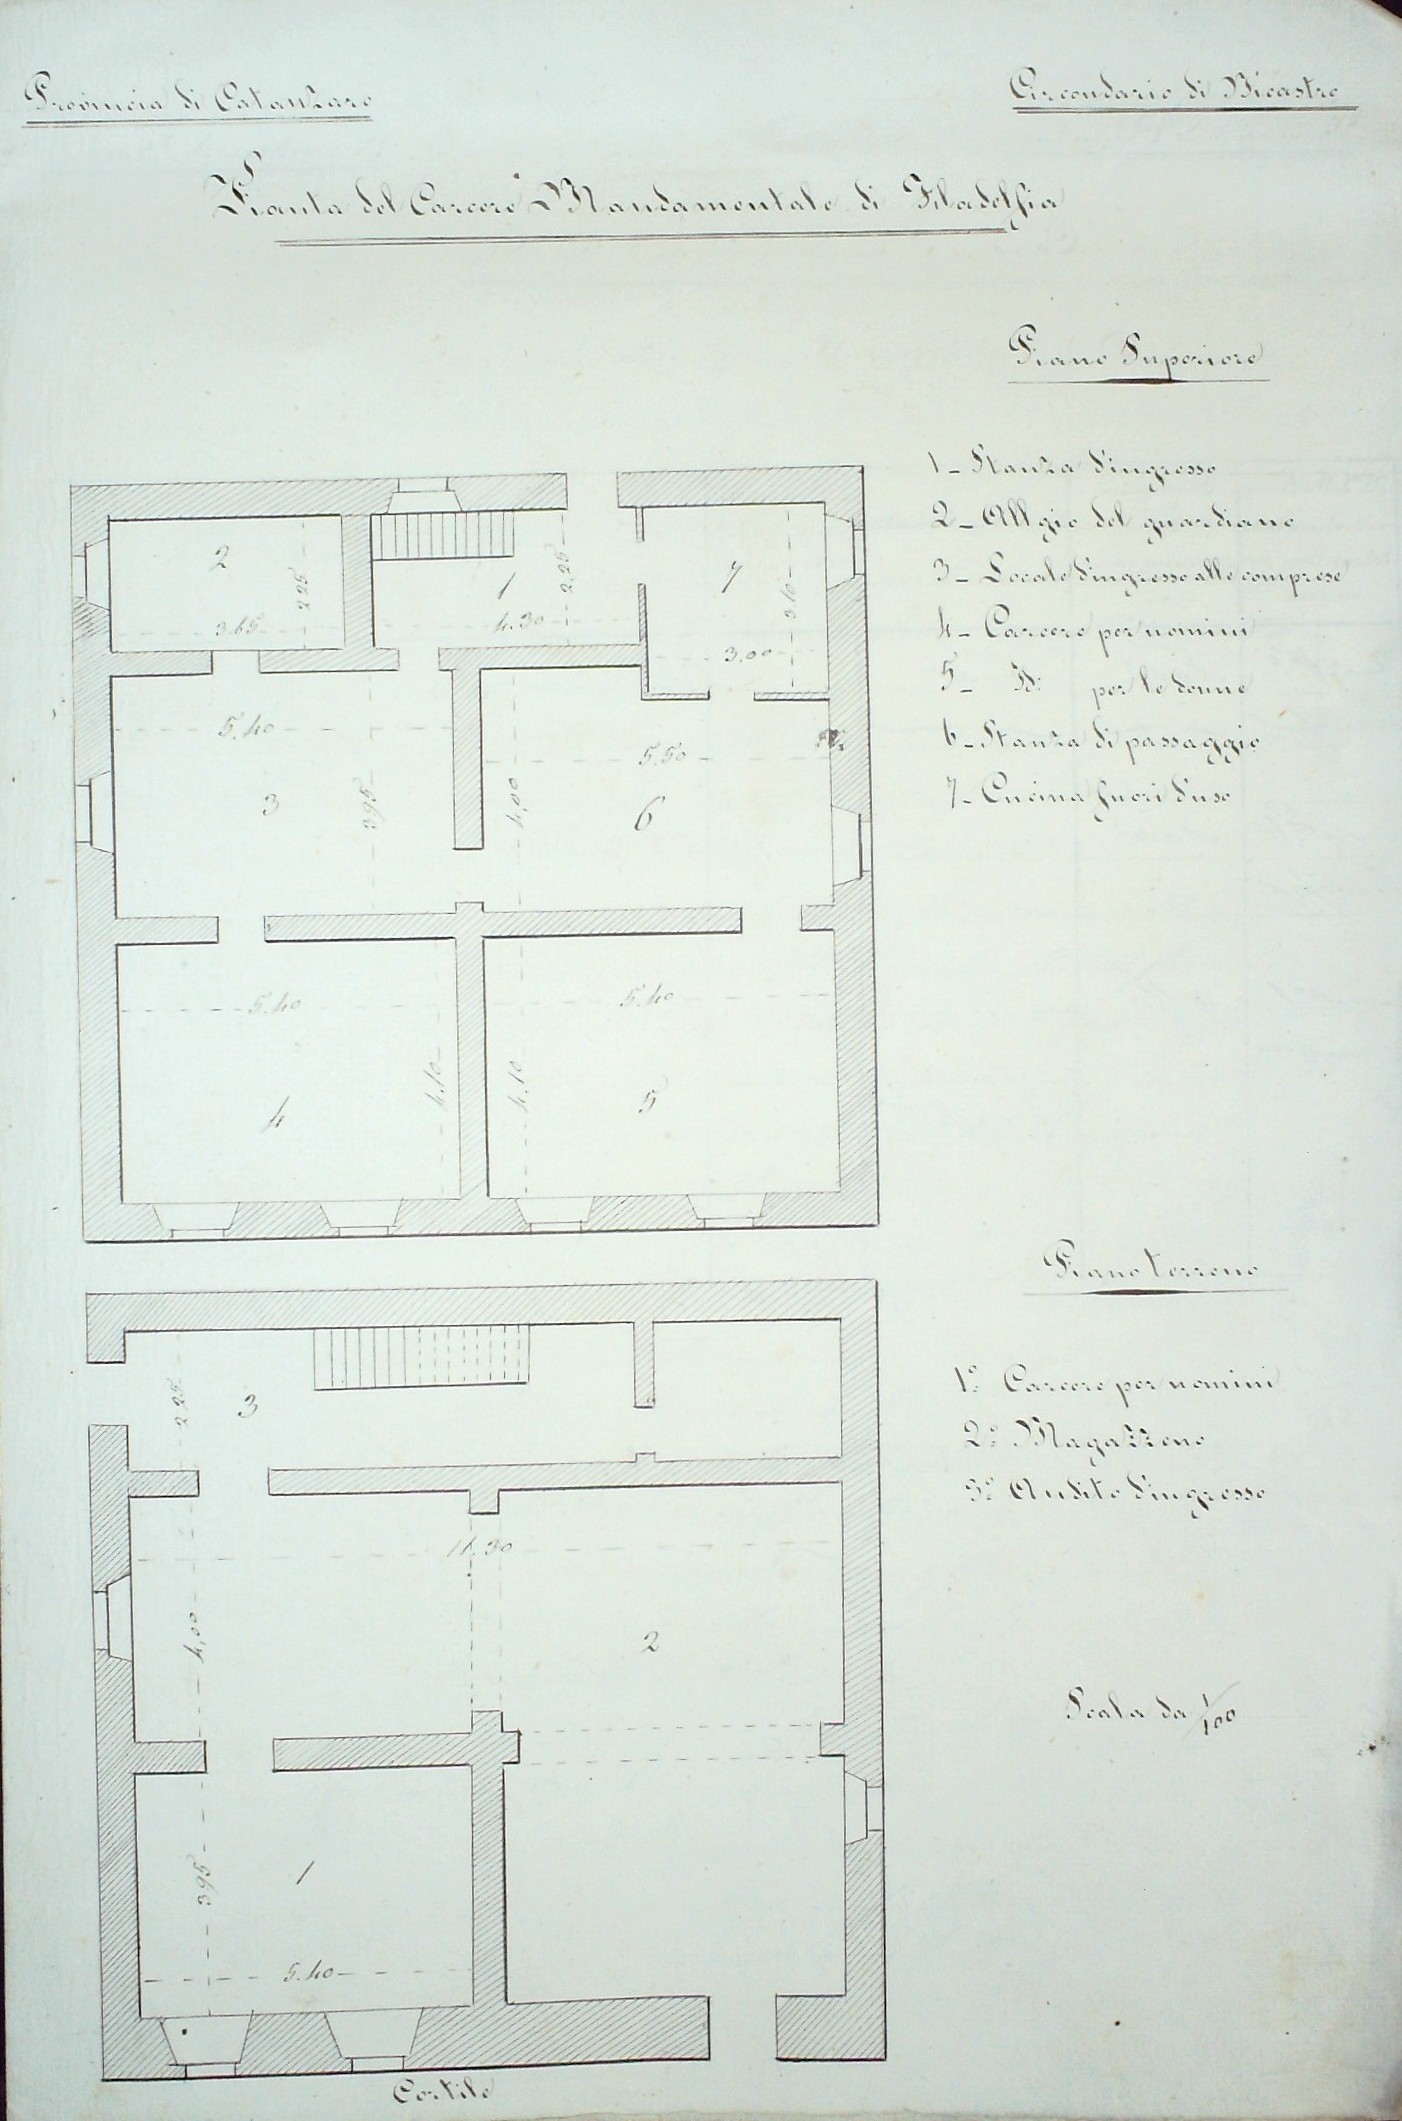 Provincia di Catanzaro
Circondario di Nicastro
Pianta del Carcere Mandamentale di Filadelfia
Piano Superiore
1 - Stanza d'ingresso
2 - Allgio del guardiano
3 - Locale d'ingresso alle comprese
4 - Carcere per uomini
5 - Id: per le donne
6 - Stanza di passaggio
7 - Cucina fuori d'uso
2
3.65
2.25
1
4.30
2.25
7
3.10
3.00
5.40
3
3.95
4,00
5.50
6
5.40
4
4.10
5.40
4.10
5
Piano terreno
1º Carcere per uomini
2º Magazzeno
3º Andito d'ingresso
Scala da 1/100
2.25
3
11.30
4,00
2
3.95
1
5.40
Cortile